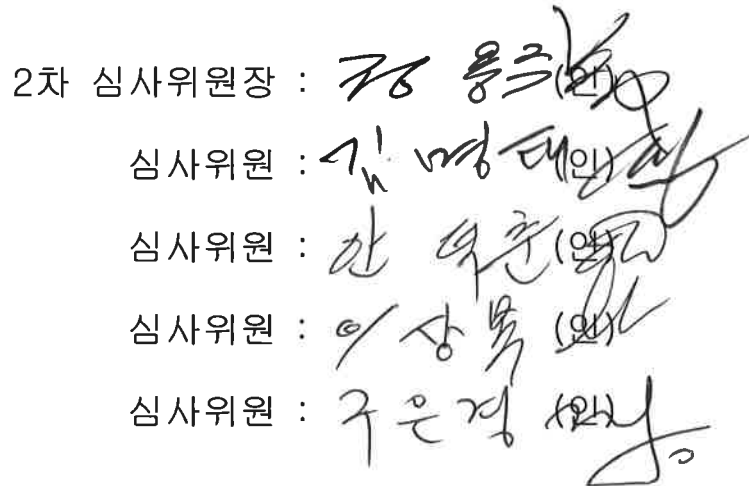 2차 심사위원장 : 정 용주 (인)
심사위원 : 김 명 태 (인)
심사위원 : 안 덕춘 (인)
심사위원 : 이 상 복 (인)
심사위원 : 구 은 경 (인)